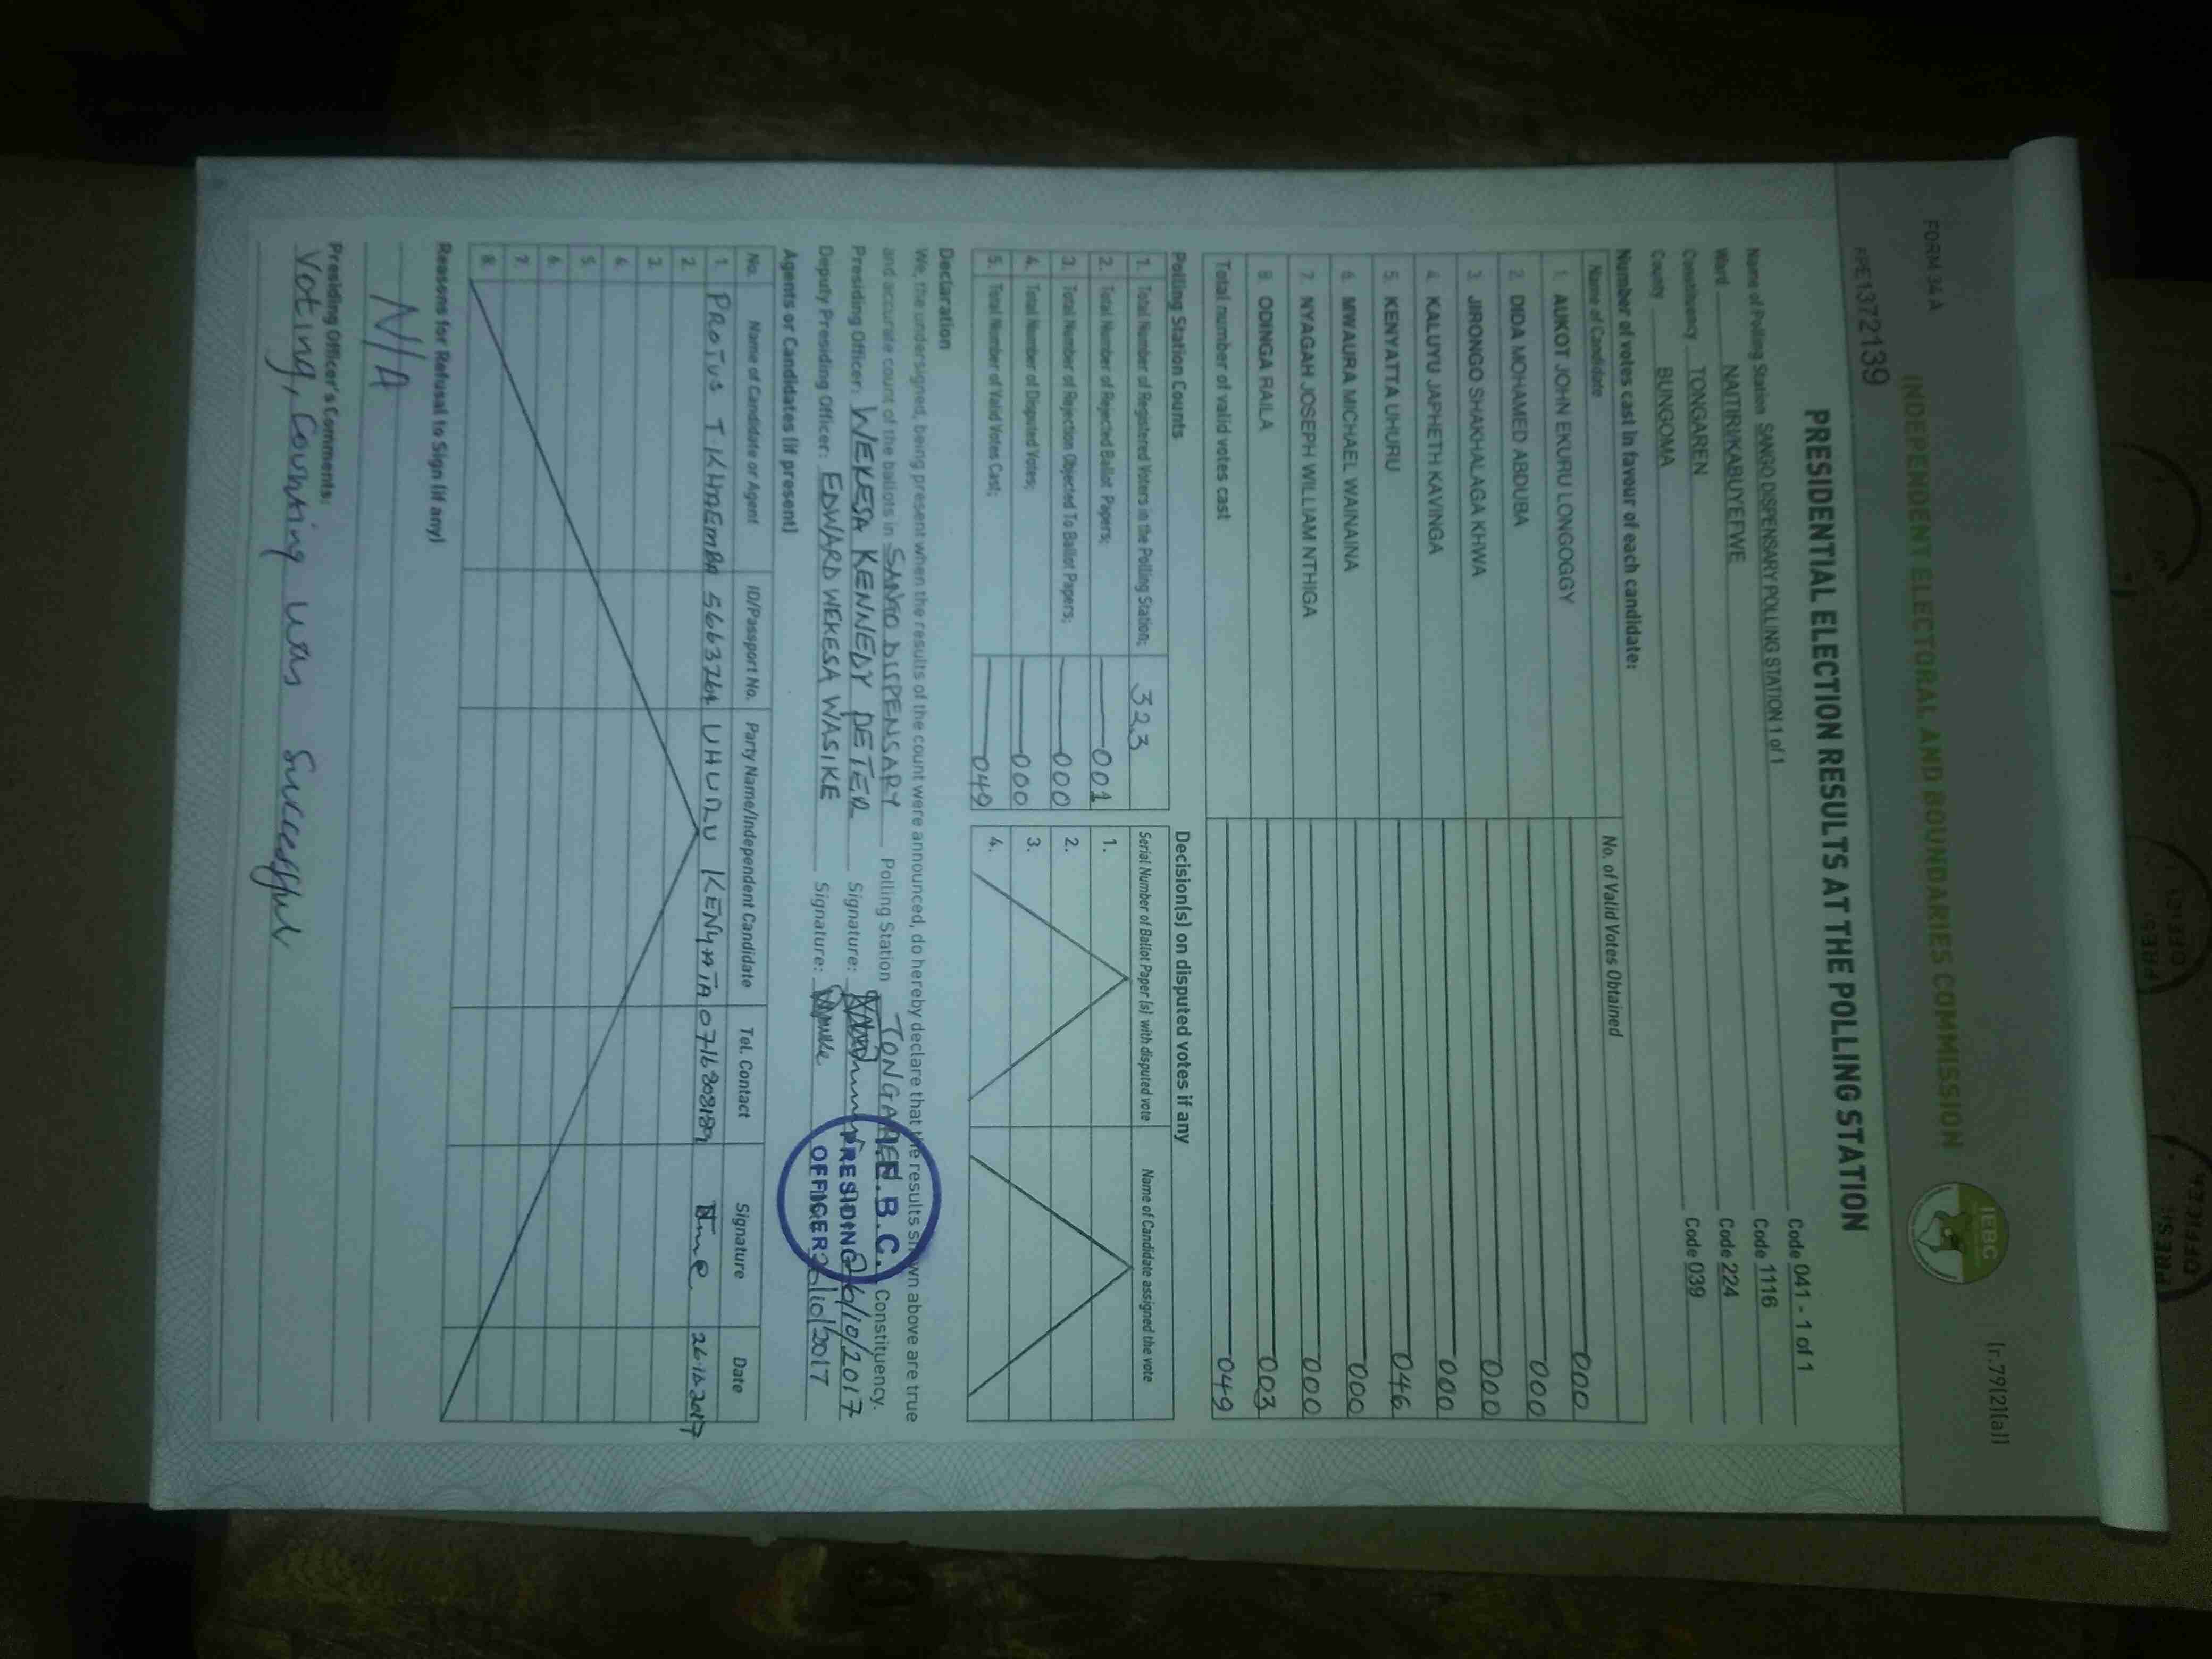 FORM 34 A
(r.79(2)(a))
INDEPENDENT ELECTORAL AND BOUNDARIES COMMISSION
IEBC
PRE1372139
PRESIDENTIAL ELECTION RESULTS AT THE POLLING STATION
Name of Polling Station SANGO DISPENSARY POLLING STATION 1 of 1 Code 041 - 1 of 1
Ward NAITIRI/KABUYEFWE Code 1116
Constituency TONGAREN Code 224
County BUNGOMA Code 039
Number of votes cast in favour of each candidate:
Name of Candidate No. of Valid Votes Obtained
1. AUKOT JOHN EKURU LONGOGGY 000
2. DIDA MOHAMED ABDUBA 000
3. JIRONGO SHAKHALAGA KHWA 000
4. KALUYU JAPHETH KAVINGA 000
5. KENYATTA UHURU 046
6. MWAURA MICHAEL WAINAINA 000
7. NYAGAH JOSEPH WILLIAM NTHIGA 000
8. ODINGA RAILA 003
Total number of valid votes cast 049
Polling Station Counts Decision(s) on disputed votes if any
1. Total Number of Registered Voters in the Polling Station; 323 Serial Number of Ballot Paper (s) with disputed vote Name of Candidate assigned the vote
2. Total Number of Rejected Ballot Papers; 001 1.
3. Total Number of Rejection Objected To Ballot Papers; 000 2.
4. Total Number of Disputed Votes; 000 3.
5. Total Number of Valid Votes Cast; 049 4.
Declaration
We, the undersigned, being present when the results of the count were announced, do hereby declare that the results shown above are true
and accurate count of the ballots in SANGO DISPENSARY Polling Station TONGAREN Constituency.
Presiding Officer: WEKESA KENNEDY PETER Signature: 26/10/2017
Deputy Presiding Officer: EDWARD WEKESA WASIKE Signature: 26/10/2017
I.E.B.C.
PRESIDING
OFFICER
Agents or Candidates (if present)
No. Name of Candidate or Agent ID/Passport No. Party Name/Independent Candidate Tel. Contact Signature Date
1. PROTUS T KHAEMBA UHURU KENYATTA 26.10.2017
2.
3.
4.
5.
6.
7.
8.
Reasons for Refusal to Sign (if any)
N/A
Presiding Officer's Comments:
Voting, Counting was Successful